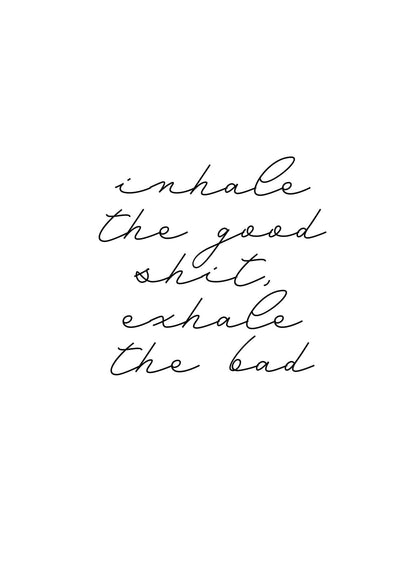 inhale
the good
shit,
exhale
the bad